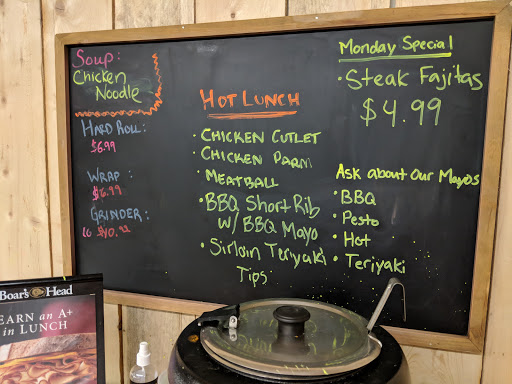 Soup:
Chicken
Noodle
HARD ROLL:
$6.99
WRAP:
GRINDER:
HOT LUNCH
• CHICKEN CUTLET
• CHICKEN PARM
• MEATBALL
• BBQ Short Rib
w/ BBQ Mayo
• Sirloin Teriyaki
Tips
Monday Special
• Steak Fajitas
$4.99
Ask about Our Mayos
• BBQ
• Pesto
• Hot
• Teriyaki
Boar's Head
EARN an A+
in LUNCH